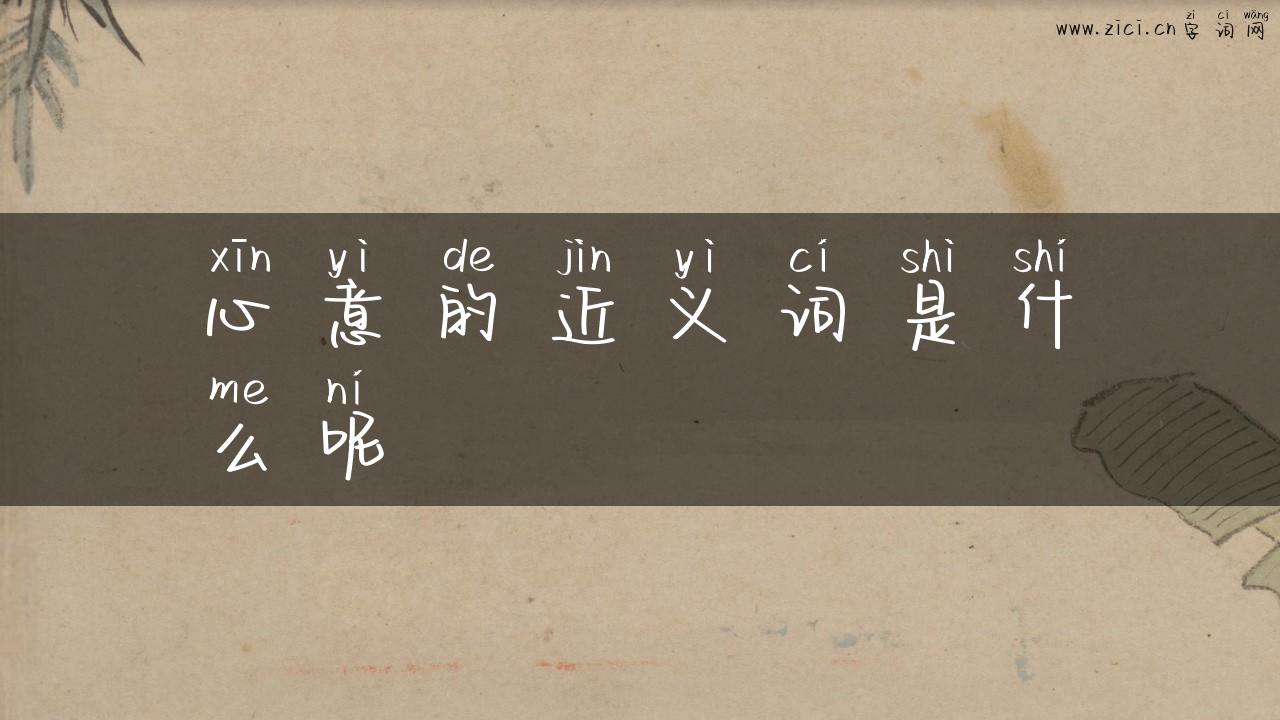 zì cí wǎng
www.zici.cn 字词网
xīn yì de jìn yì cí shì shí
心意的近义词是什
me ní
么呢